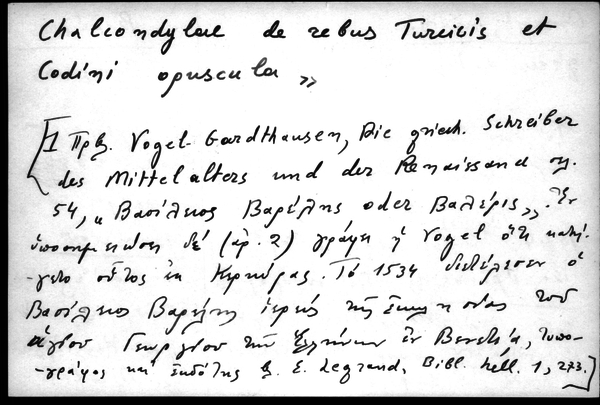 Chalcondylae de rebus Turcicis et
Codini opuscula »
[1 Πρβ. Vogel-Gardthausen, Die griech. Schreiber
des Mittelalters und der Renaissance σελ.
54, « Βασίλειος Βαρέλης oder Βαλέρις». Ἐν
ὑποσημειώσει δέ (ἀρ. 2) γράφει ἡ Vogel ὅτι κατή-
-γετο οὗτος ἐκ Κερκύρας. Τό 1534 διετέλεσεν ὁ
Βασίλειος Βαρέλης ἱερεύς τῆς ἐκκλησίας τοῦ
ἁγίου Γεωργίου τῶν Ἑλλήνων ἐν Βενετίᾳ, τυπο-
-γράφος καί ἐκδότης β. E. Legrand, Bibl. hell. 1, 273.]